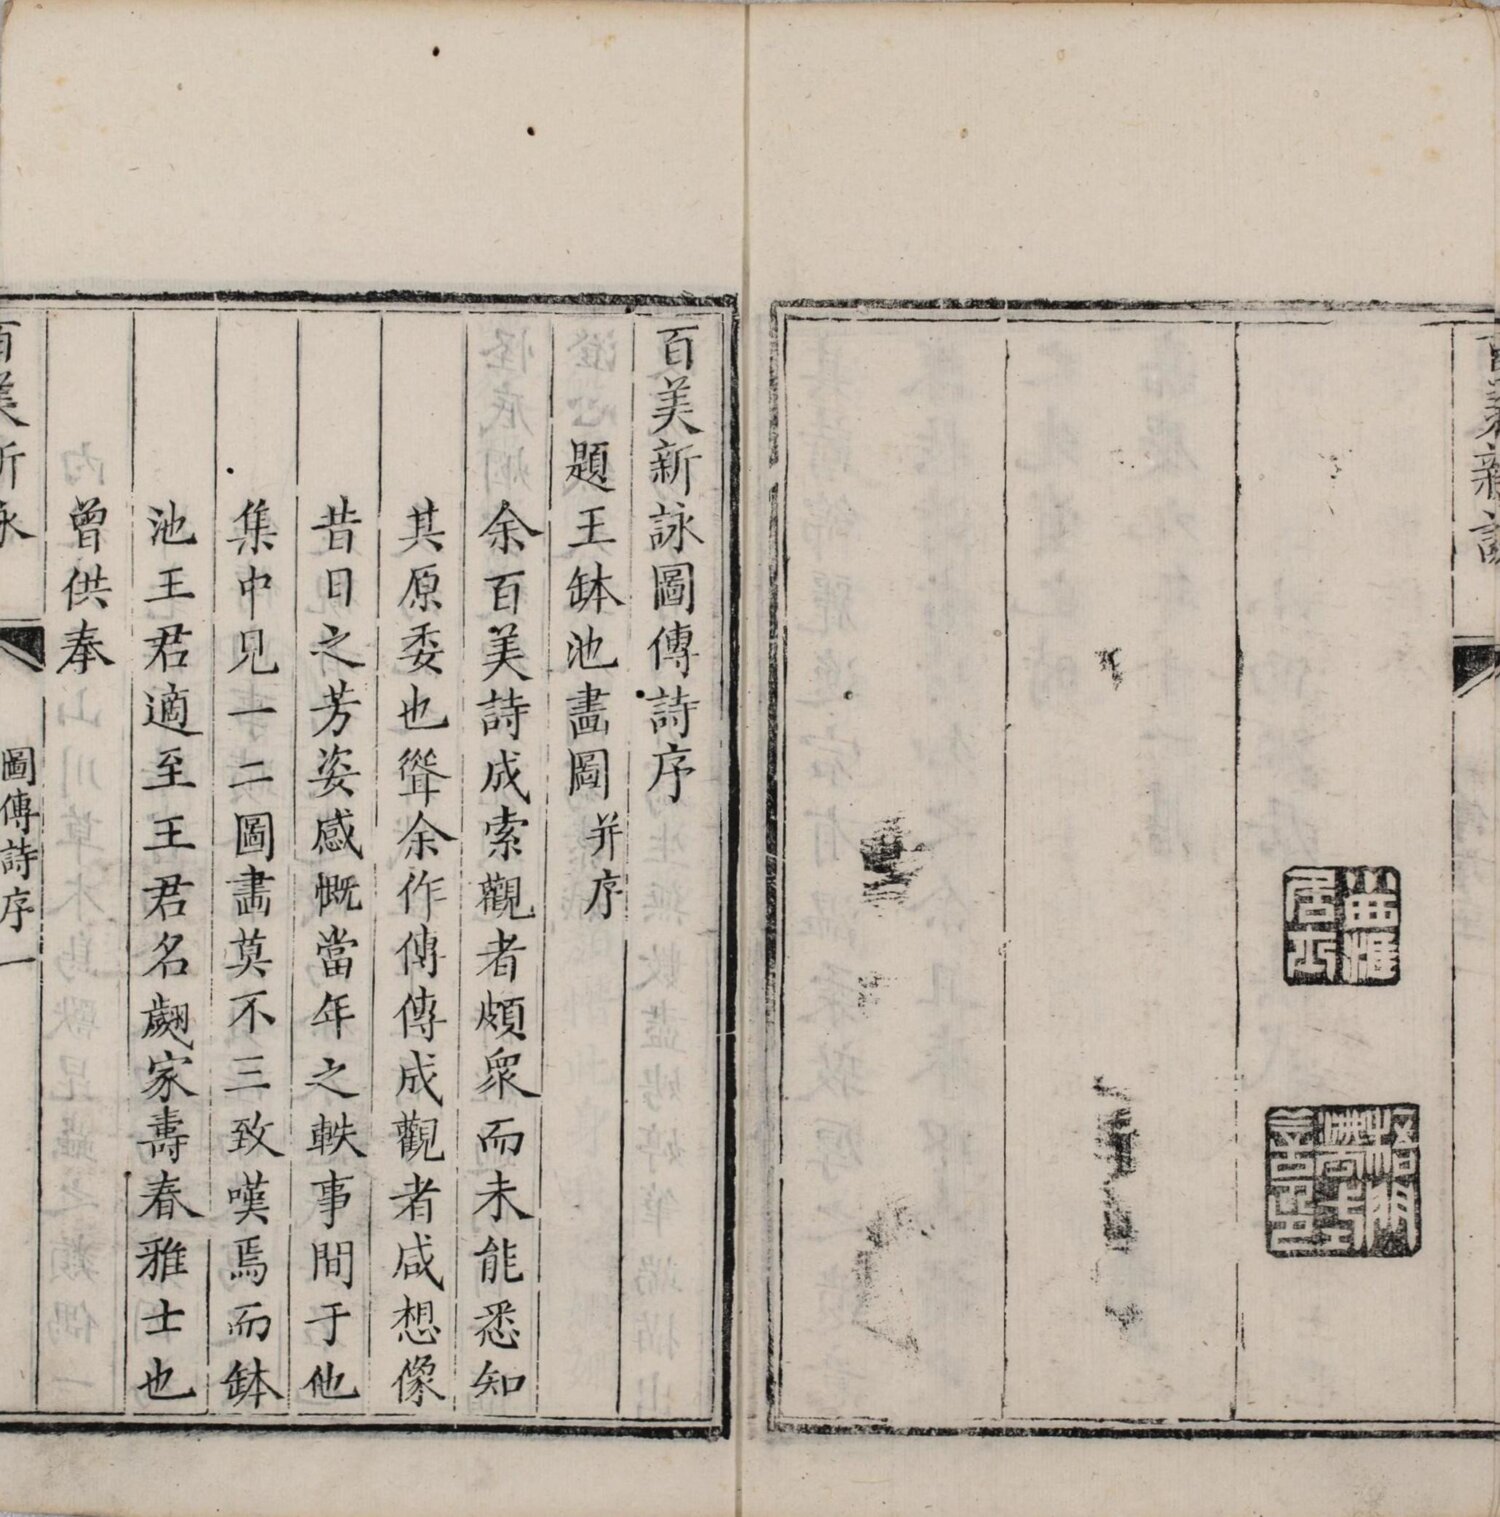 百美新詠
百美新詠圖傳詩序
題王缽池畫圖 并序
余百美詩成索觀者頗衆而未能悉知
其原委也聳余作傳傳成觀者咸想像
昔日之芳姿感慨當年之軼事間于他
集中見一二圖畵莫不三致嘆焉而缽
池王君適至王君名翽家壽春雅士也
曾供奉
百美新詠
圖傳詩序 一